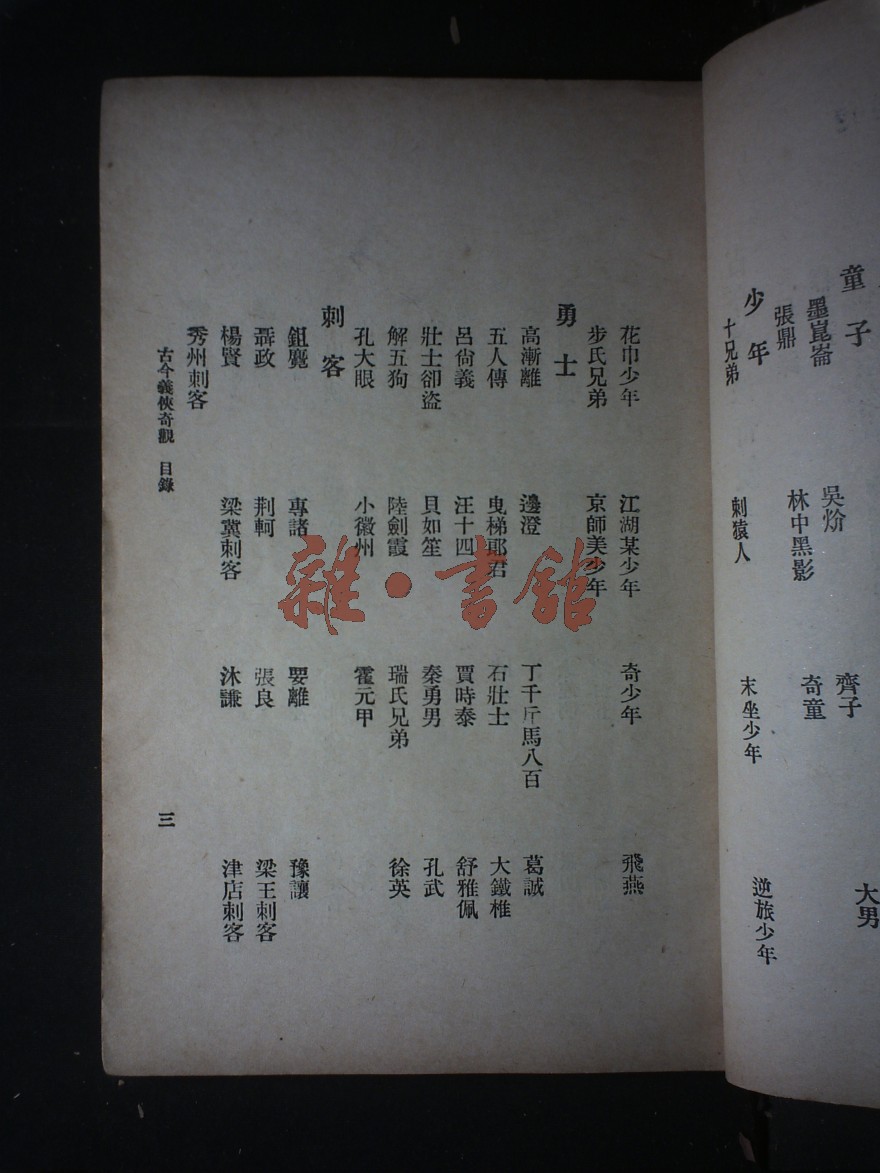 童子
大男
墨崑崙 吳炌 齊子
張鼎 林中黑影 奇童
少年
十兄弟 刺猿人 末坐少年 逆旅少年
花巾少年 江湖某少年 奇少年 飛燕
步氏兄弟 京師美少年
勇士
高漸離 邊澄 丁千斤馬八百 葛誠
五人傳 曳梯郎君 石壯士 大鐵椎
呂尙義 汪十四 賈時泰 舒雅佩
壯士卻盜 貝如笙 秦勇男 孔武
解五狗 陸劍霞 瑞氏兄弟 徐英
孔大眼 小徽州 霍元甲
刺客
鉏麑 專諸 要離 豫讓
聶政 荆軻 張良 梁王刺客
楊賢 梁冀刺客 沐謙 津店刺客
秀州刺客
古今義俠奇觀 目錄 三
雜·書館